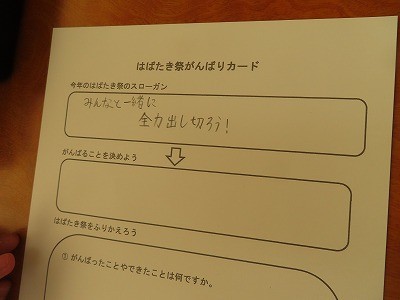 はばたき祭がんばりカード
今年のはばたき祭のスローガン
みんなと一緒に
全力出し切ろう!
がんばることを決めよう
はばたき祭をふりかえろう
① がんばったことやできたことは何ですか。